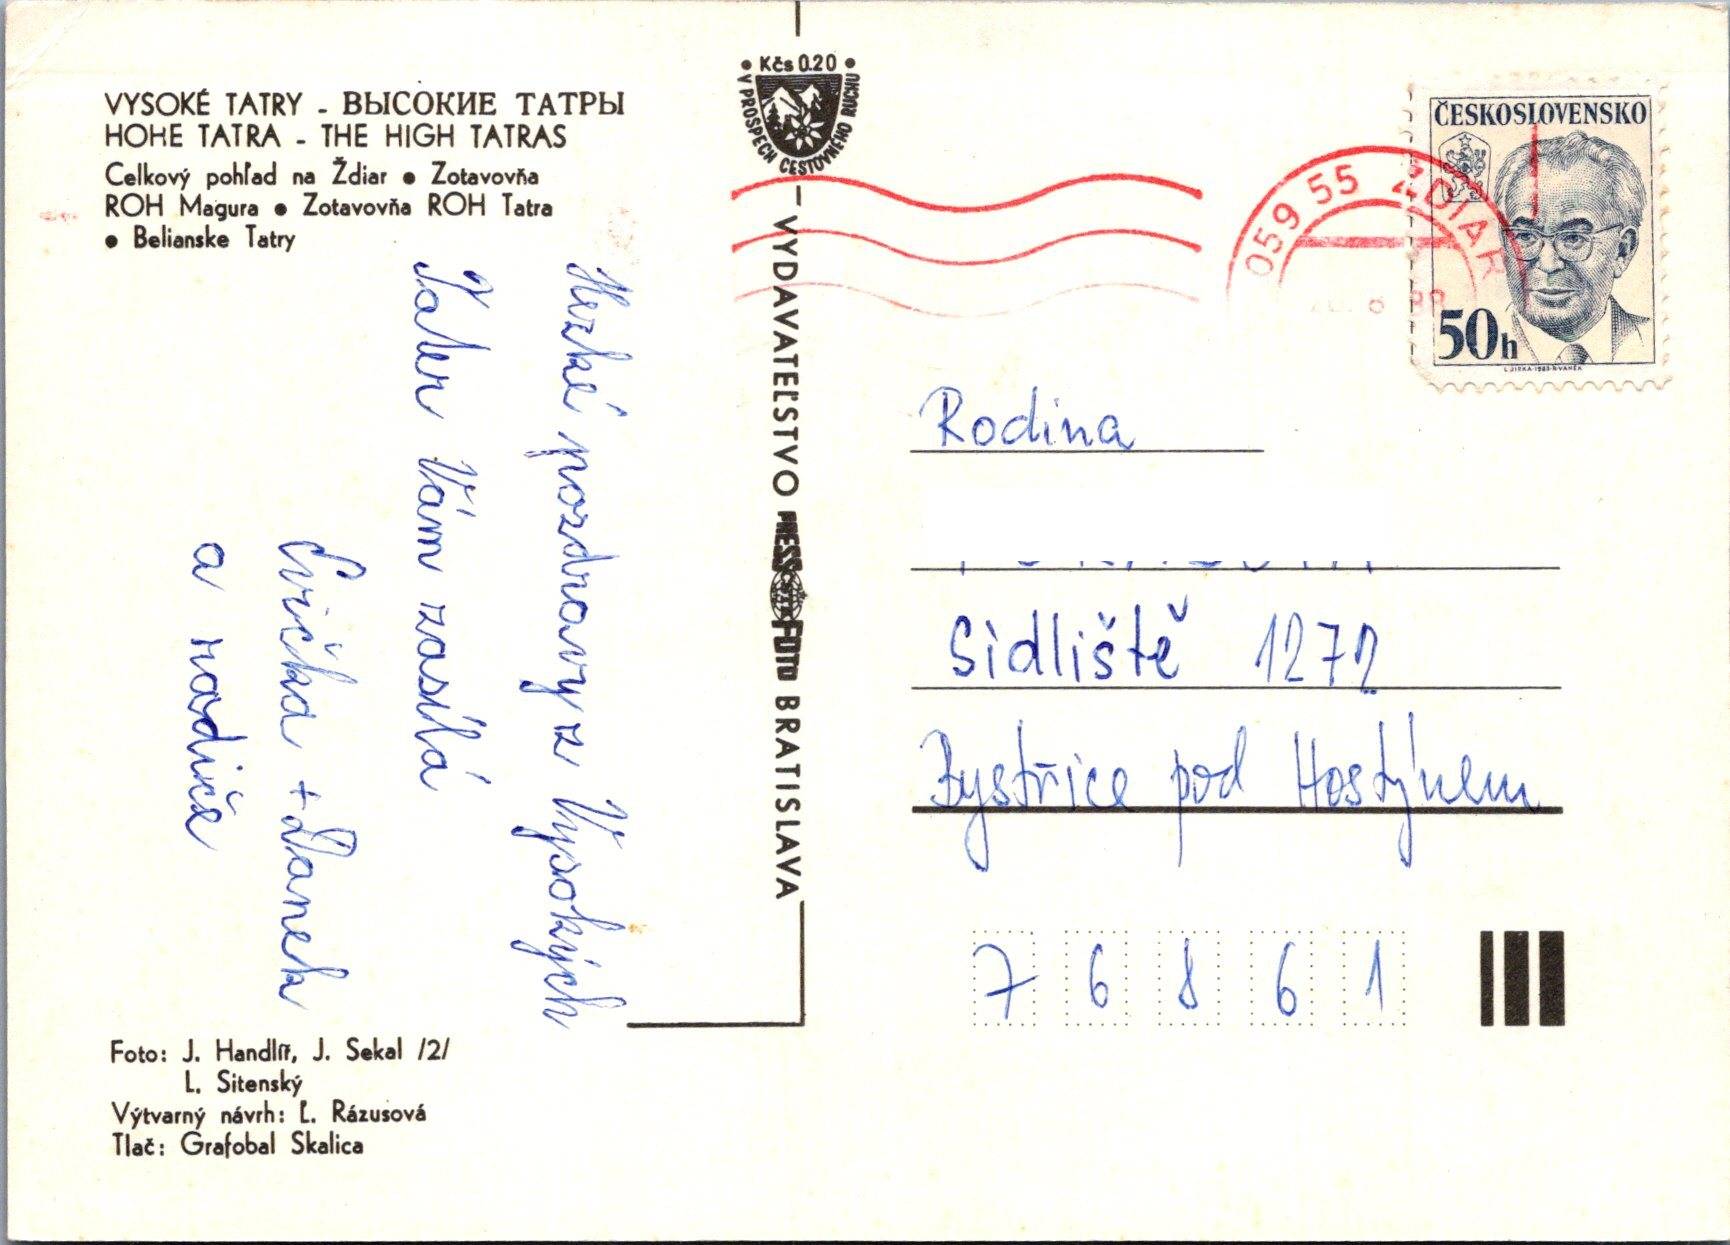 VYSOKÉ TATRY - ВЫСОКИЕ ТАТРЫ
HOHE TATRA - THE HIGH TATRAS
Celkový pohľad na Ždiar • Zotavovňa
ROH Magura • Zotavovňa ROH Tatra
• Belianske Tatry
Hezké pozdravy z Vysokých
Tater Vám zasílá
Evička + Danek
a rodiče
Foto: J. Handlíř, J. Sekal /2/
L. Sitenský
Výtvarný návrh: Ľ. Rázusová
Tlač: Grafobal Skalica
• Kčs 0.20 •
V PROSPECH CESTOVNÉHO RUCHU
VYDAVATEĽSTVO PRESSFOTO BRATISLAVA
059 55 ŽDIAR
ČESKOSLOVENSKO
50h
L.JIRKA-1983-R.VANĚK
Rodina
Sídliště 1272
Bystřice pod Hostýnem
76861